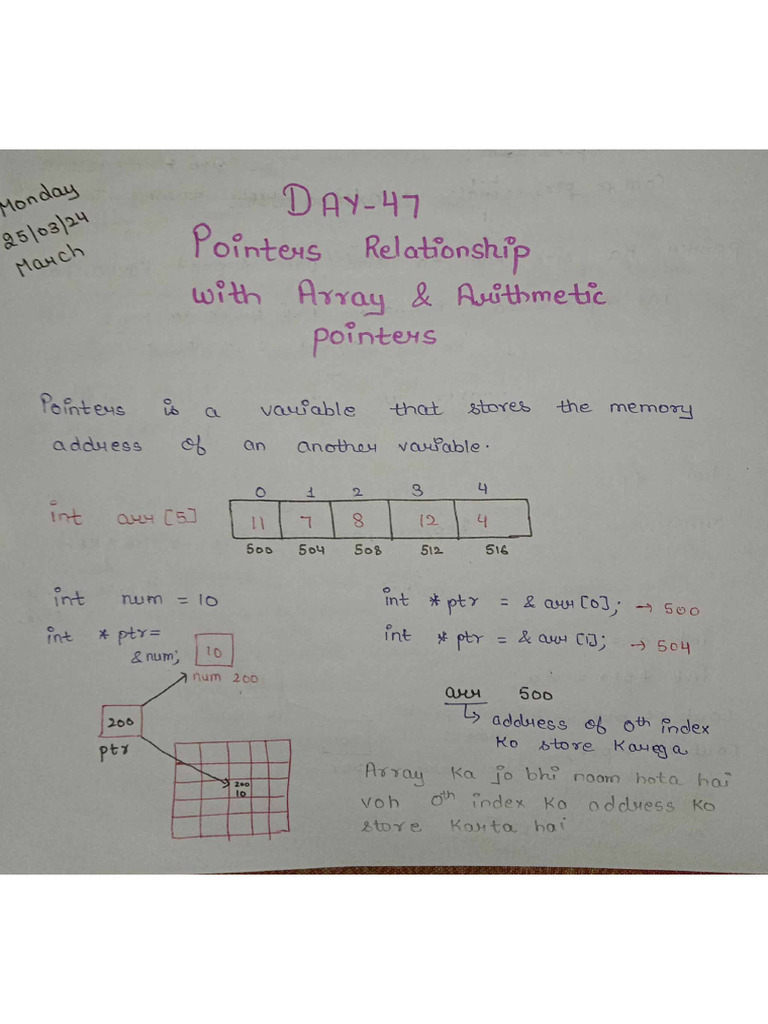 Monday
25/03/24
March
DAY-47
Pointers Relationship
with Array & Arithmetic
pointers
Pointers is a variable that stores the memory
address of an another variable.
0 1 2 3 4
int arr [5] 11 7 8 12 4
500 504 508 512 516
int num = 10
int *ptr=
&num;
10
num 200
200
ptr
200
10
int *ptr = & arr [0]; → 500
int *ptr = & arr [1]; → 504
arr 500
↳ address of 0th index
Ko store Karega
Array Ka jo bhi naam hota hai
voh 0th index Ka address Ko
store Karta hai